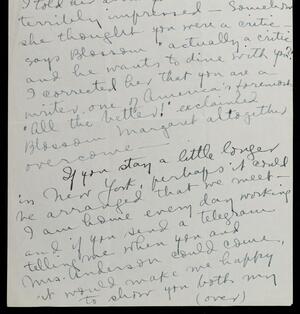 I told
terribly impressed - Somehow
she thought you were a critic -
says Blossom "actually a critic
and he wants to dine with you?"
I corrected her that you are a
writer, one of America's foremost
"All the better!" exclaimed
Blossom Margaret altogether
overcome -
If you stay a little longer
in New York, perhaps it could
be arranged that we meet -
I am home every day working
and if you send a telegram
telling me when you and
Mrs. Anderson could come,
it would make me happy
to show you both my
(over)